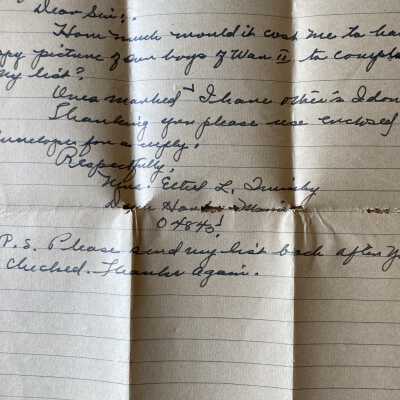 Dear Sir;.
How much would it cost me to ha
opy picture of our boys of War II, to comple
my list?
Ones marked I have other's I don
Thanking you please use enclosed
envelope for a reply.
Respectfully,
Mrs. Ethel L.
Deer
04845!
P.S. Please send my list back after y
checked. Thanks again.